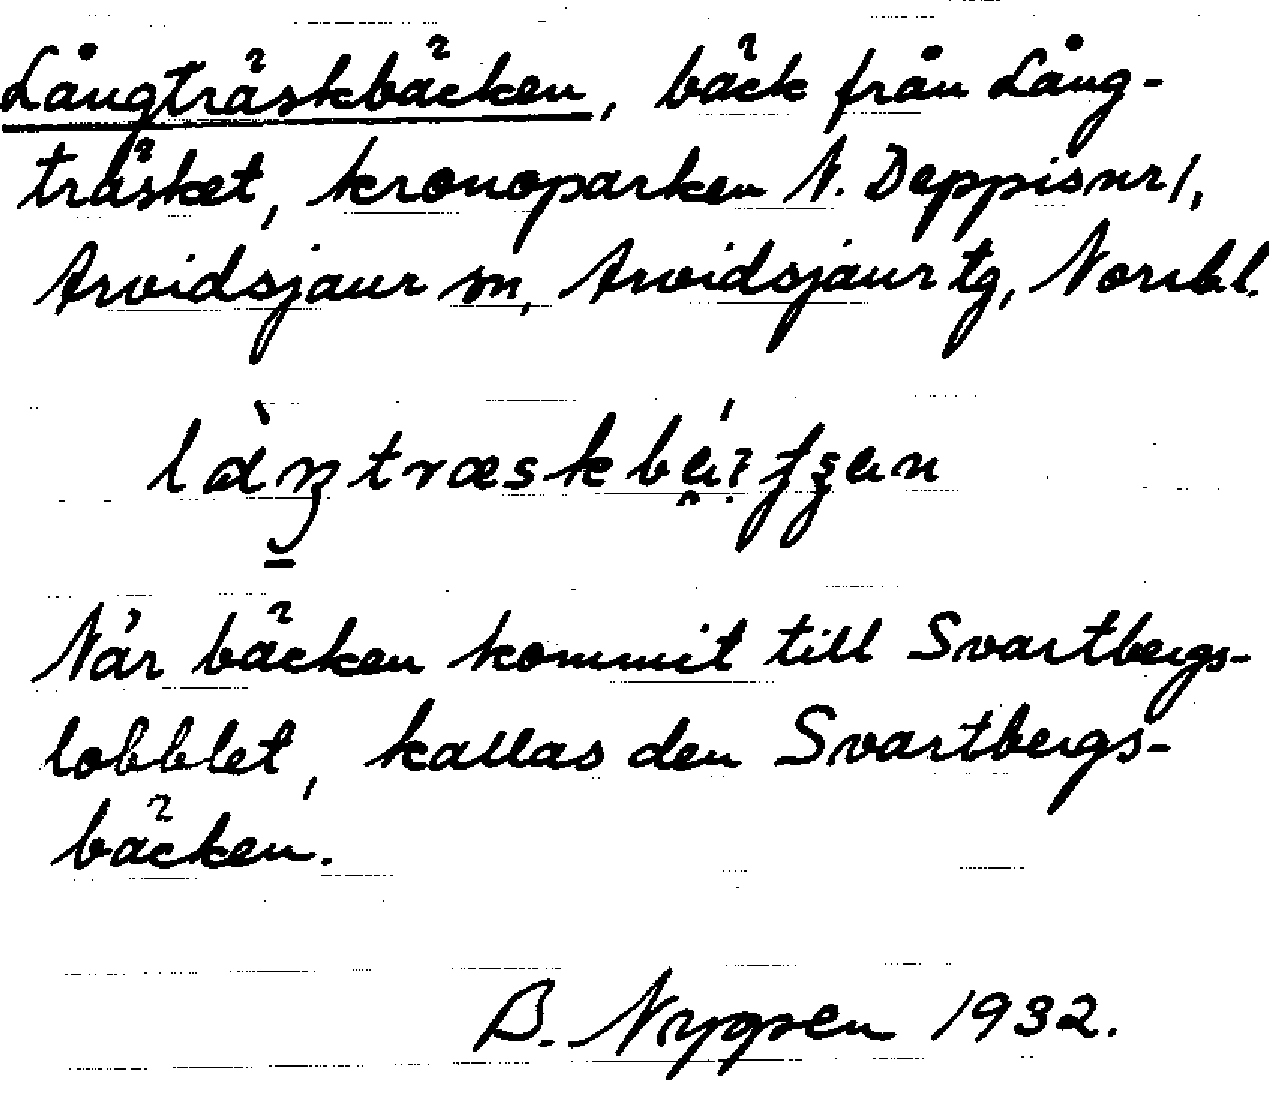 Långträskbäcken, bäck från Lång-
träsket, kronoparken N. Deppisnr 1,
Arvidsjaur sn, Arvidsjaur tg, Norrbl.
När bäcken kommit till Svartbergs-
lobblet, kallas den Svartbergs-
bäcken.
B. Nygren 1932.